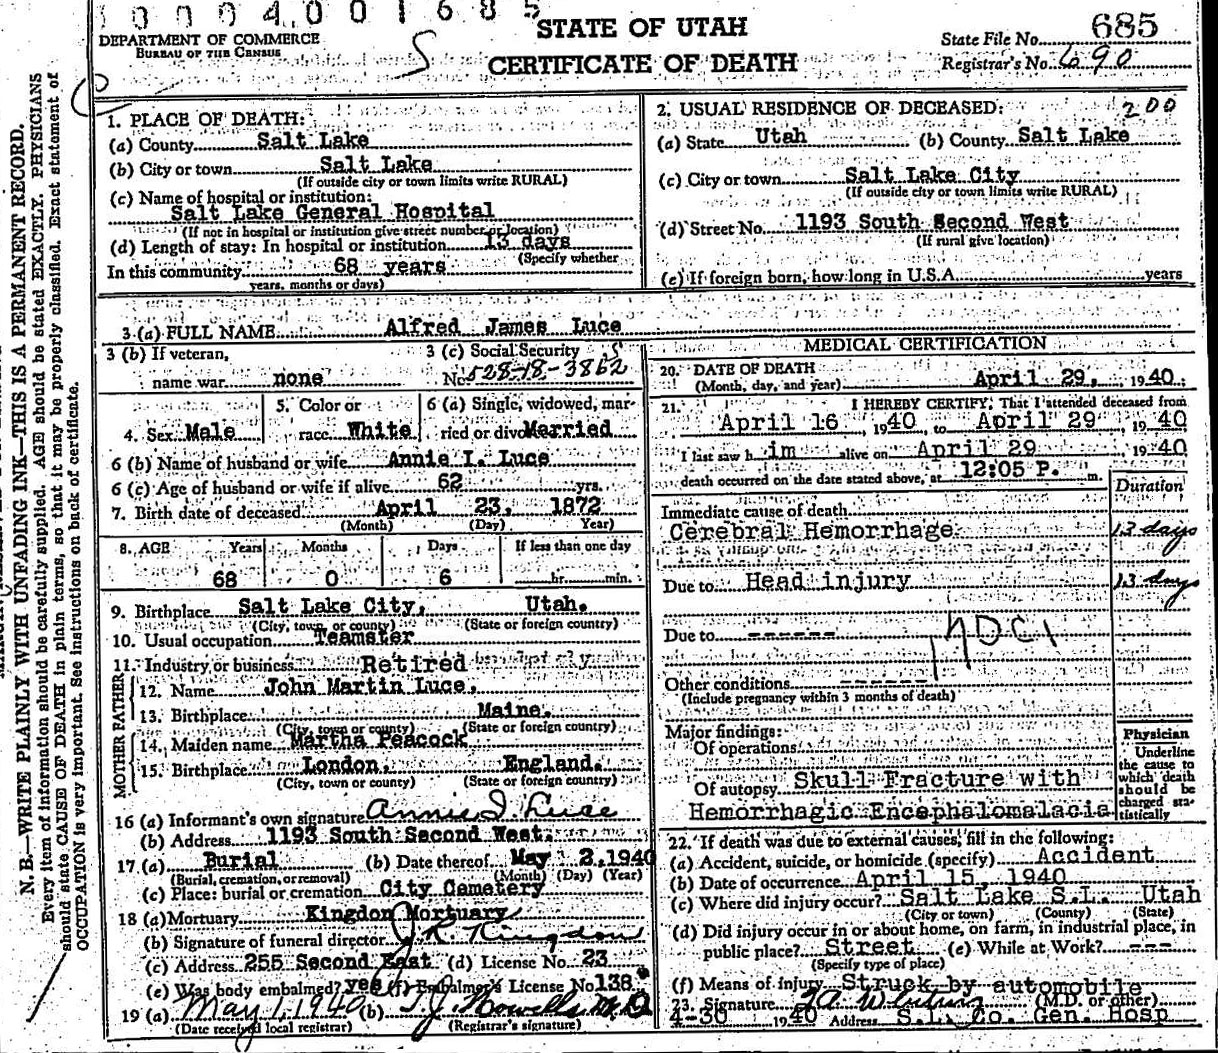 1 0 0 0 4 0 0 1 6 8 5
DEPARTMENT OF COMMERCE
BUREAU OF THE CENSUS
S
STATE OF UTAH
CERTIFICATE OF DEATH
State File No. 685
Registrar's No. 690
N. B.—WRITE PLAINLY WITH UNFADING INK—THIS IS A PERMANENT RECORD.
Every item of information should be carefully supplied. AGE should be stated EXACTLY. PHYSICIANS
should state CAUSE OF DEATH in plain terms, so that it may be properly classified. Exact statement of
OCCUPATION is very important. See instructions on back of certificate.
1. PLACE OF DEATH:
(a) County Salt Lake
(b) City or town Salt Lake
(If outside city or town limits write RURAL)
(c) Name of hospital or institution:
Salt Lake General Hospital
(If not in hospital or institution give street number or location)
(d) Length of stay: In hospital or institution 13 days
(Specify whether
In this community 68 years
years, months or days)
2. USUAL RESIDENCE OF DECEASED: 200
(a) State Utah (b) County Salt Lake
(c) City or town Salt Lake City
(If outside city or town limits write RURAL)
(d) Street No. 1193 South Second West
(If rural give location)
(e) If foreign born, how long in U.S.A. years
3 (a) FULL NAME Alfred James Luce
3 (b) If veteran,
name war none
3 (c) Social Security
No. 528-18-3862
4. Sex Male
5. Color or
race White
6 (a) Single, widowed, mar-
ried or divo Married
6 (b) Name of husband or wife Annie I. Luce
6 (c) Age of husband or wife if alive 62 yrs.
7. Birth date of deceased April 23, 1872
(Month) (Day) (Year)
8. AGE Years Months Days If less than one day
68 0 6 hr. min.
9. Birthplace Salt Lake City, Utah.
(City, town, or county) (State or foreign country)
10. Usual occupation Teamster
11. Industry or business Retired
FATHER
12. Name John Martin Luce,
13. Birthplace Maine.
(City, town or county) (State or foreign country)
MOTHER
14. Maiden name Martha Peacock
15. Birthplace London, England.
(City, town or county) (State or foreign country)
16 (a) Informant's own signature Annie I. Luce
(b) Address 1193 South Second West.
17 (a) Burial (b) Date thereof May 2, 1940
(Burial, cremation, or removal) (Month) (Day) (Year)
(c) Place: burial or cremation City Cametery
18 (a) Mortuary Kingdon Mortuary
(b) Signature of funeral director J. R. Kingdon
(c) Address 255 Second East (d) License No. 23
(e) Was body embalmed? yes (f) Embalmer's License No. 138
19 (a) May 1, 1940 (b) T. J. Howells M.D.
(Date received local registrar) (Registrar's signature)
MEDICAL CERTIFICATION
20. DATE OF DEATH
(Month, day, and year) April 29, 1940.
21. I HEREBY CERTIFY, That I attended deceased from
April 16, 1940, to April 29, 1940
I last saw h im alive on April 29, 1940
death occurred on the date stated above, at 12:05 P. m.
Duration
Immediate cause of death
Cerebral Hemorrhage 13 days
Due to Head injury 13 days
Due to ------
Other conditions ------
(Include pregnancy within 3 months of death)
Major findings:
Of operations
Of autopsy Skull Fracture with
Hemorrhagic Encephalomalacia
Physician
Underline
the cause to
which death
should be
charged sta-
tistically
22. If death was due to external causes, fill in the following:
(a) Accident, suicide, or homicide (specify) Accident
(b) Date of occurrence April 15, 1940
(c) Where did injury occur? Salt Lake S.L. Utah
(City or town) (County) (State)
(d) Did injury occur in or about home, on farm, in industrial place, in
public place? Street (e) While at Work? ---
(Specify type of place)
(f) Means of injury Struck by automobile
23. Signature (M.D. or other)
4-30 1940 Address S.L. Co. Gen. Hosp